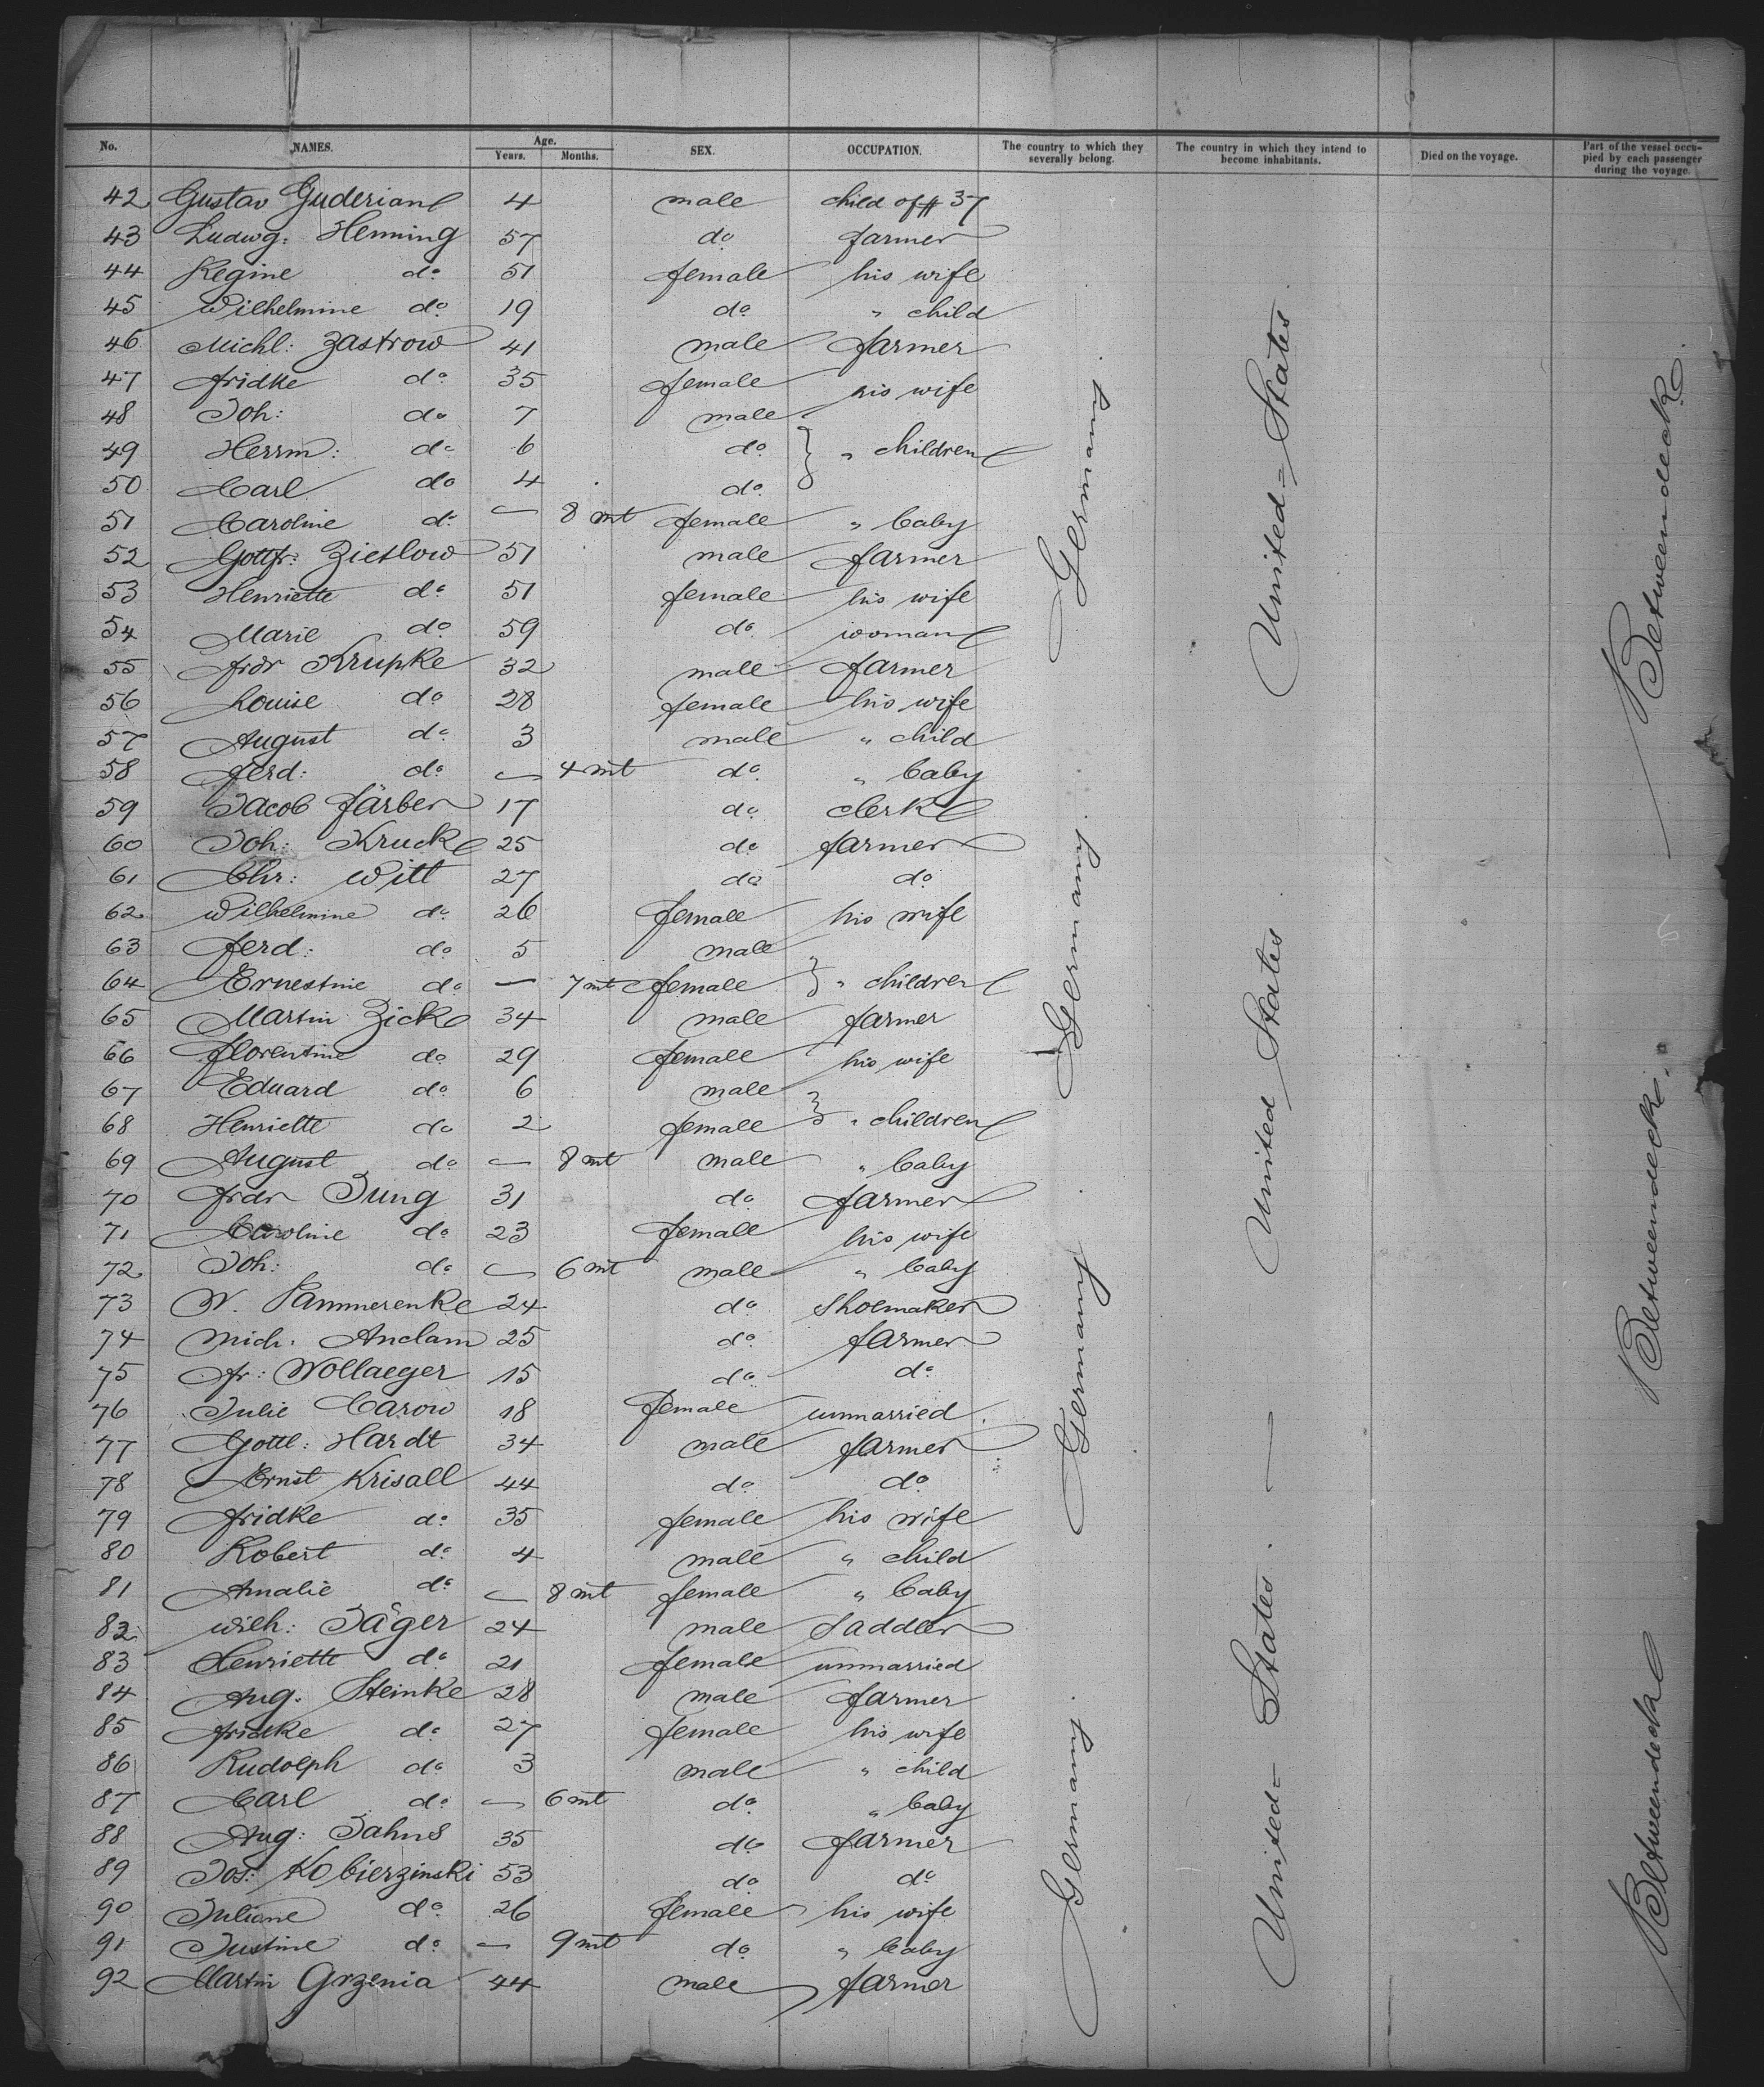 No. NAMES. Age. Years. Months. SEX. OCCUPATION. The country to which they severally belong. The country in which they intend to become inhabitants. Died on the voyage. Part of the vessel occupied by each passenger during the voyage.
42 Gustav Guderian 4 male child of # 37
43 Ludwg: Henning 57 do farmer
44 Regine do 51 female his wife
45 Wilhelmine do 19 do " child
46 Michl: Zastrow 41 male farmer
47 Fridke do 35 female his wife
48 Joh: do 7 male
49 Herrm: do 6 do " children
50 Carl do 4 do
51 Caroline do — 8 mt female " baby
52 Gottfr: Zietlow 51 male farmer
53 Henriette do 51 female his wife
54 Marie do 59 do woman
55 Frdr Krupke 32 male farmer
56 Louise do 28 female his wife
57 August do 3 male " child
58 Ferd: do — 4 mt do " baby
59 Jacob Färber 17 do clerk
60 Joh: Krucke 25 do farmer
61 Chr: Witt 27 do do
62 Wilhelmine do 26 female his wife
63 Ferd: do 5 male
64 Ernestine do — 7 mt female " children
65 Martin Zicke 34 male farmer
66 Florentine do 29 female his wife
67 Eduard do 6 male
68 Henriette do 2 female " children
69 August do — 8 mt male " baby
70 Frdr Jung 31 do farmer
71 Caroline do 23 female his wife
72 Joh: do — 6 mt male " baby
73 W. Pammerenke 24 do Shoemaker
74 Mich. Anclam 25 do farmer
75 Fr: Wollaeger 15 do do
76 Julie Carow 18 female unmarried
77 Gottl: Hardt 34 male farmer
78 Ernst Krisall 44 do do
79 Fridke do 35 female his wife
80 Robert do 4 male " child
81 Amalie do — 8 mt female " baby
82 Wilh: Jäger 24 male Saddler
83 Henriette do 21 female unmarried
84 Aug. Steinke 28 male farmer
85 Fridke do 27 female his wife
86 Rudolph do 3 male " child
87 Carl do — 6 mt do " baby
88 Aug: Jahns 35 do farmer
89 Jos: Kobierzinski 53 do do
90 Juliane do 26 female his wife
91 Justine do — 9 mt do " baby
92 Martin Grzenia 44 male farmer
Germany.
Germany.
Germany.
Germany.
United-States.
United States
United-States.
Betweendeck.
Betweendeck.
Betweendeck